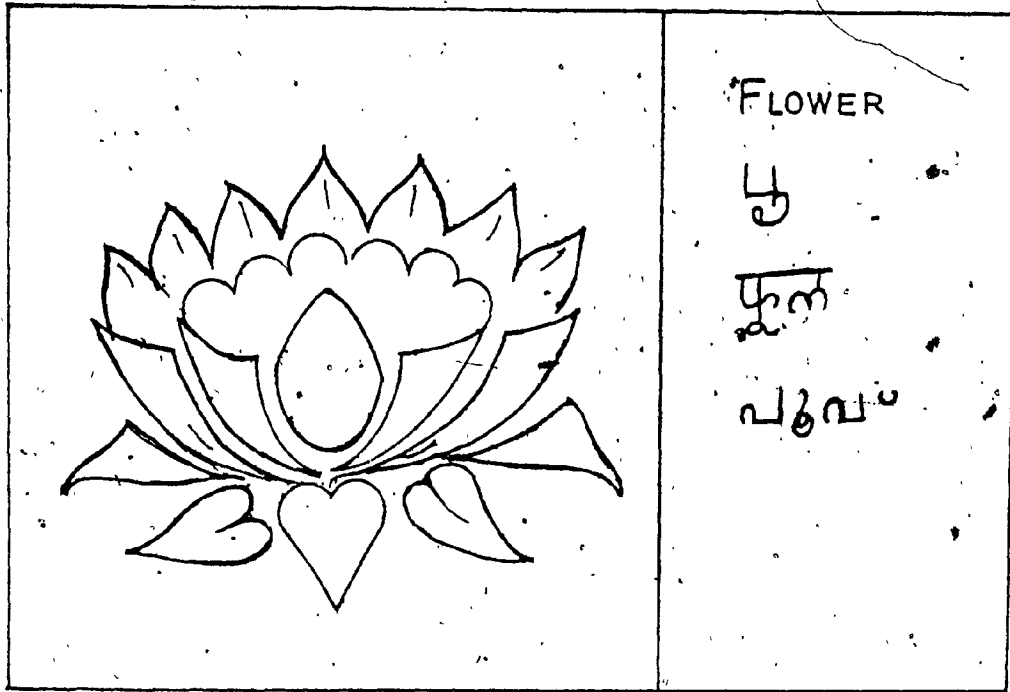 FLOWER
பூ
फूल
പൂവ്